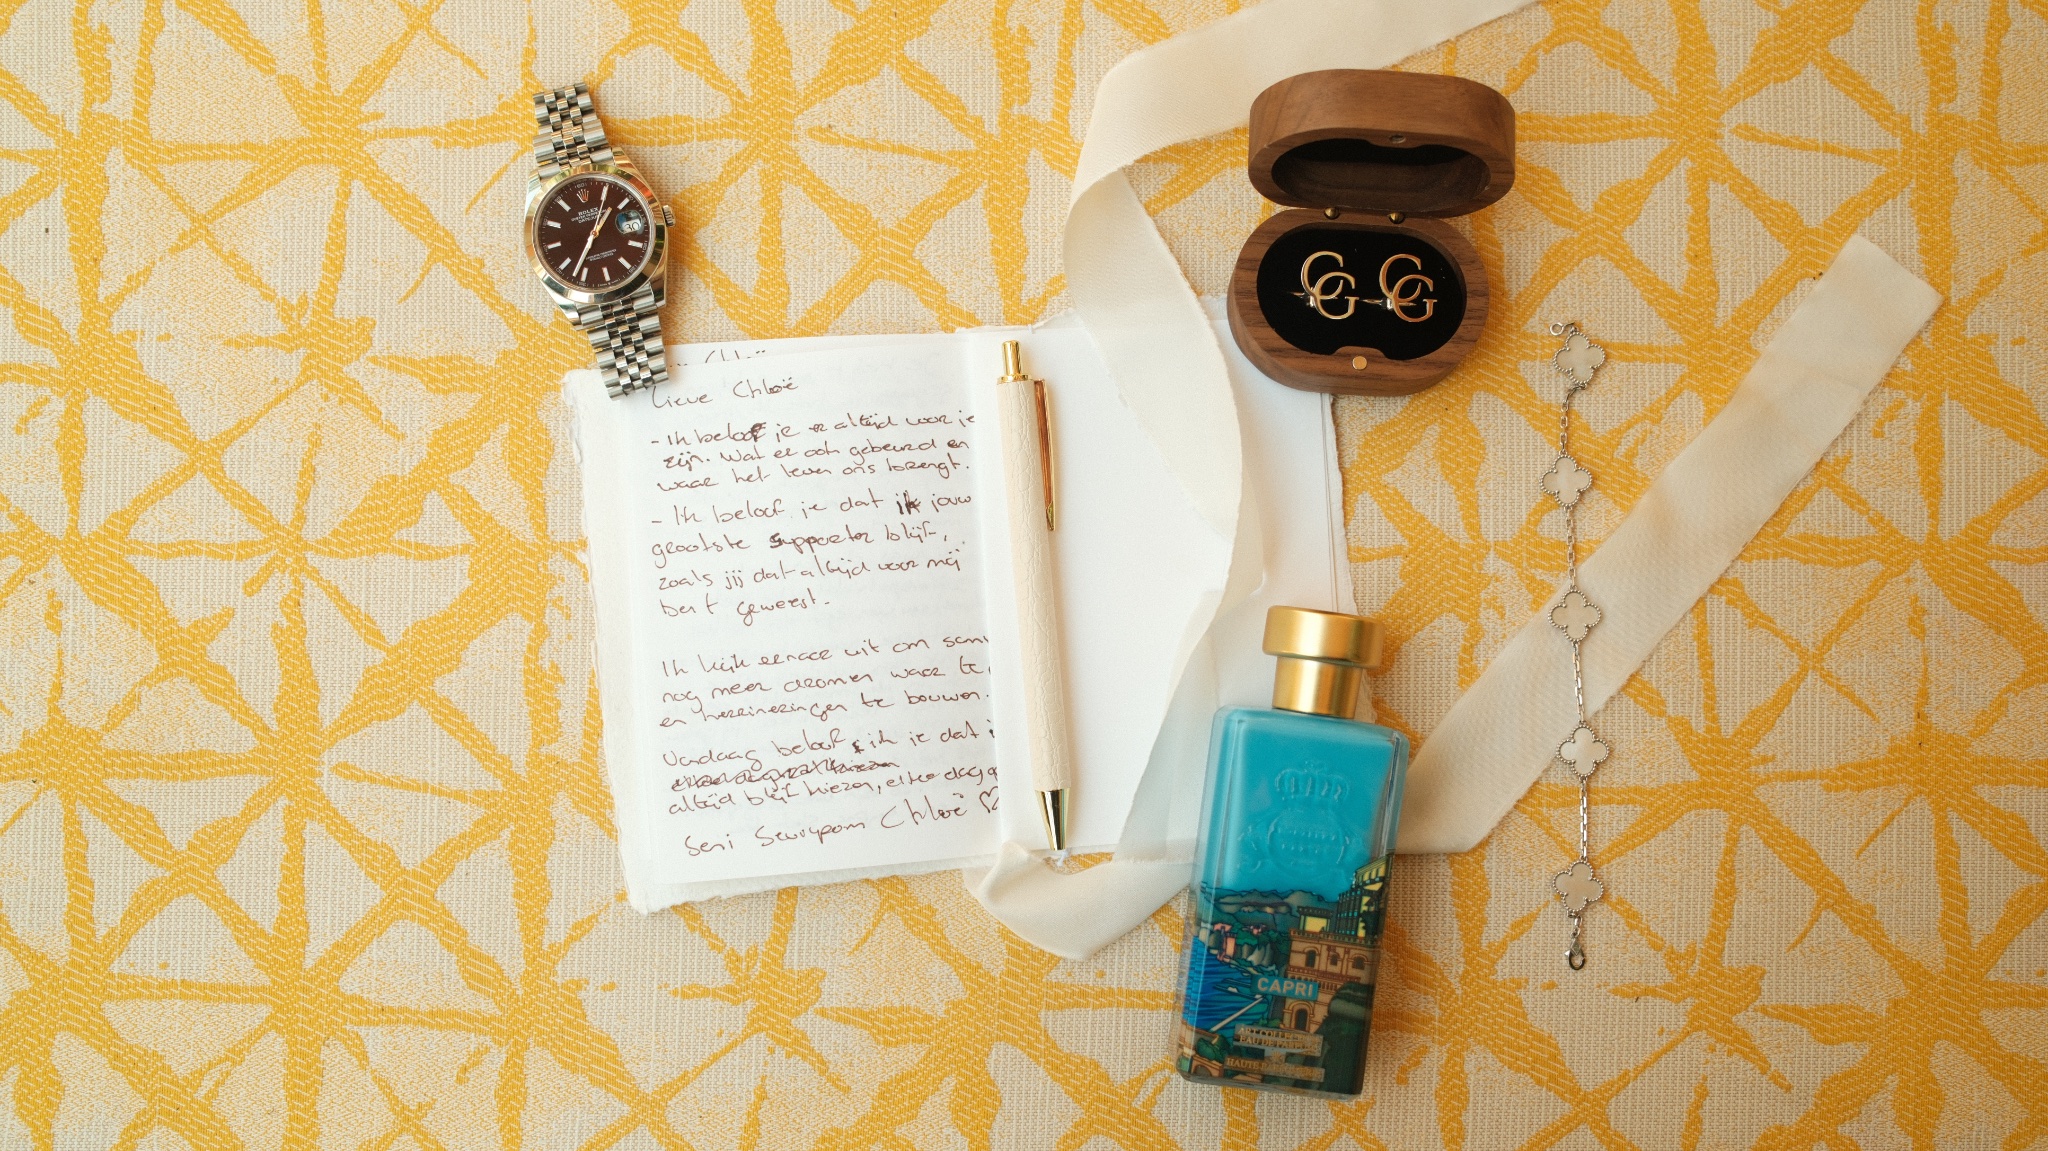 ROLEX
30
Chloë
Lieve Chloë
- Ik beloof je altijd voor je
zijn. Wat er ook gebeurd en
waar het leven ons brengt.
- Ik beloof je dat ik jouw
grootste supporter blijf,
zoals jij dat altijd voor mij
bent geweest.
Ik kijk ernaar uit om sam
nog meer dromen waar te
en herrineringen te bouwen.
Vandaag beloof ik je dat i
altijd blijf kiezen, elke dag
Seni Chloë
GG GG
CAPRI
ART COLLECTION
EAU DE PARFUM
HAUTE